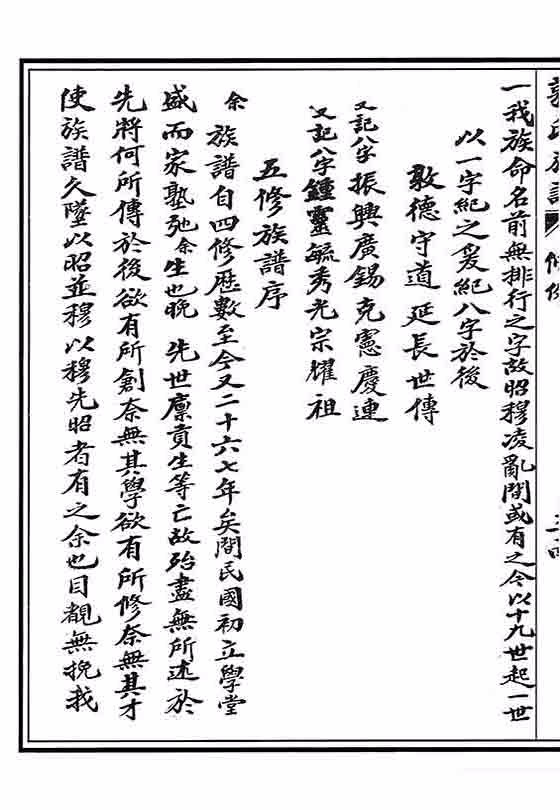 一我族命名前無排行之字故昭穆凌亂間或有之今以十九世起一世
以一字紀之爰紀八字於後
敦德守道延長世傳
又記八字振興廣錫克憲慶連
又記八字鍾靈毓秀光宗耀祖
五修族譜序
余族譜自四修歷數至今又二十六七年矣間民國初立學堂
盛而家塾弛余生也晚先世廪貢生等亡故殆盡無所述於
先將何所傳於後欲有所創奈無其學欲有所修奈無其才
使族譜久墜以昭並穆以穆先昭者有之余也目覩無挽哉